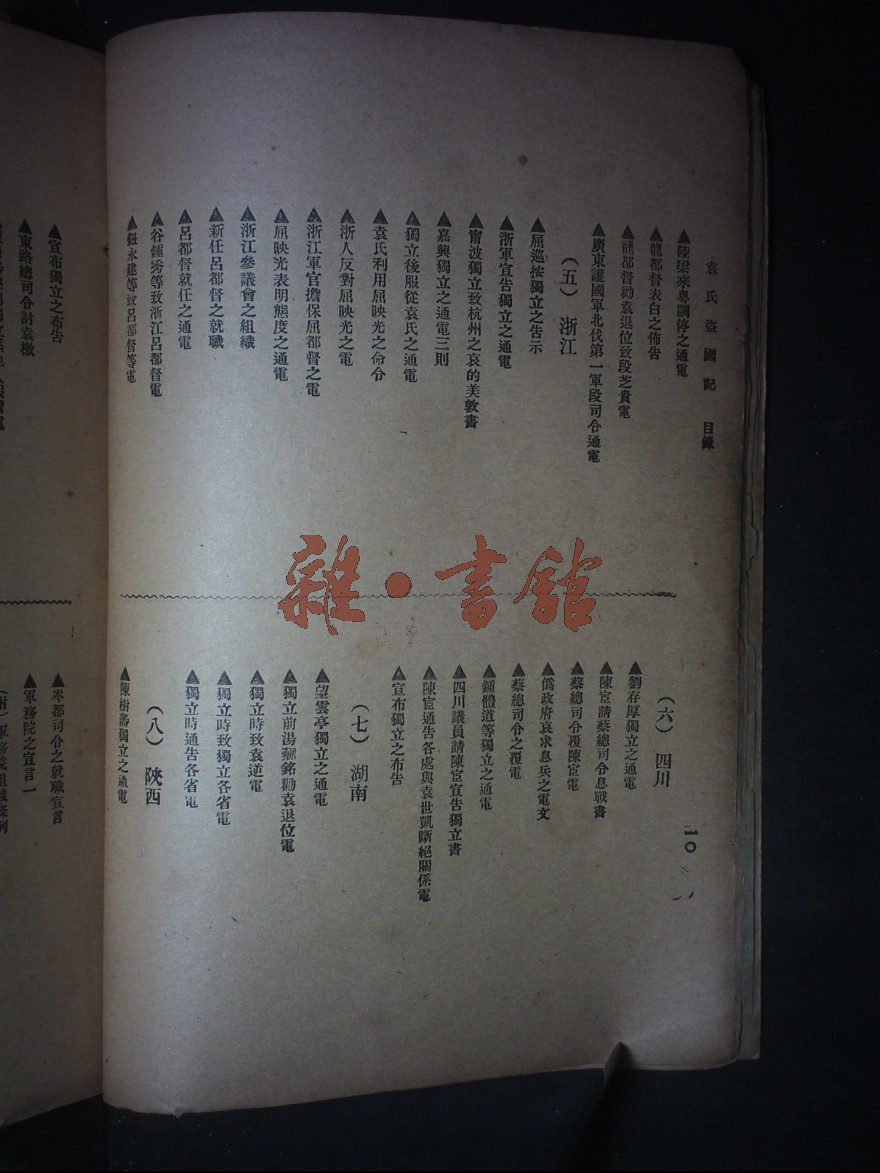 袁氏盜國記 目錄
▲陸梁來粵調停之通電
▲龍都督表白之佈告
▲龍都督勸袁退位致段芝貴電
▲廣東護國軍北伐第一軍段司令通電
（五） 浙江
▲屈巡按獨立之告示
▲浙軍宣告獨立之通電
▲甯波獨立致杭州之哀的美敦書
▲嘉興獨立之通電三則
▲獨立後服從袁氏之通電
▲袁氏利用屈映光之命令
▲浙人反對屈映光之電
▲浙江軍官擔保屈都督之電
▲屈映光表明態度之通電
▲浙江參議會之組織
▲新任呂都督之就職
▲呂都督就任之通電
▲谷鍾秀等致浙江呂都督電
▲鈕永建等致呂都督等電
（六） 四川
▲劉存厚獨立之通電
▲陳宧請蔡總司令息戰書
▲蔡總司令覆陳宧電
▲僞政府哀求息兵之電文
▲蔡總司令之覆電
▲鍾體道等獨立之通電
▲四川議員請陳宧宣告獨立書
▲陳宧通告各處與袁世凱斷絕關係電
▲宣布獨立之布告
（七） 湖南
▲望雲亭獨立之通電
▲獨立前湯薌銘勸袁退位電
▲獨立時致袁逆電
▲獨立時致獨立各省電
▲獨立時通告各省電
（八） 陝西
▲陳樹藩獨立之通電
一〇
雜·書館
▲宣布獨立之布告
▲東路總司令討袁檄
▲岑都司令之就職宣言
▲軍務院之宣言一
（附）軍務院組織條例